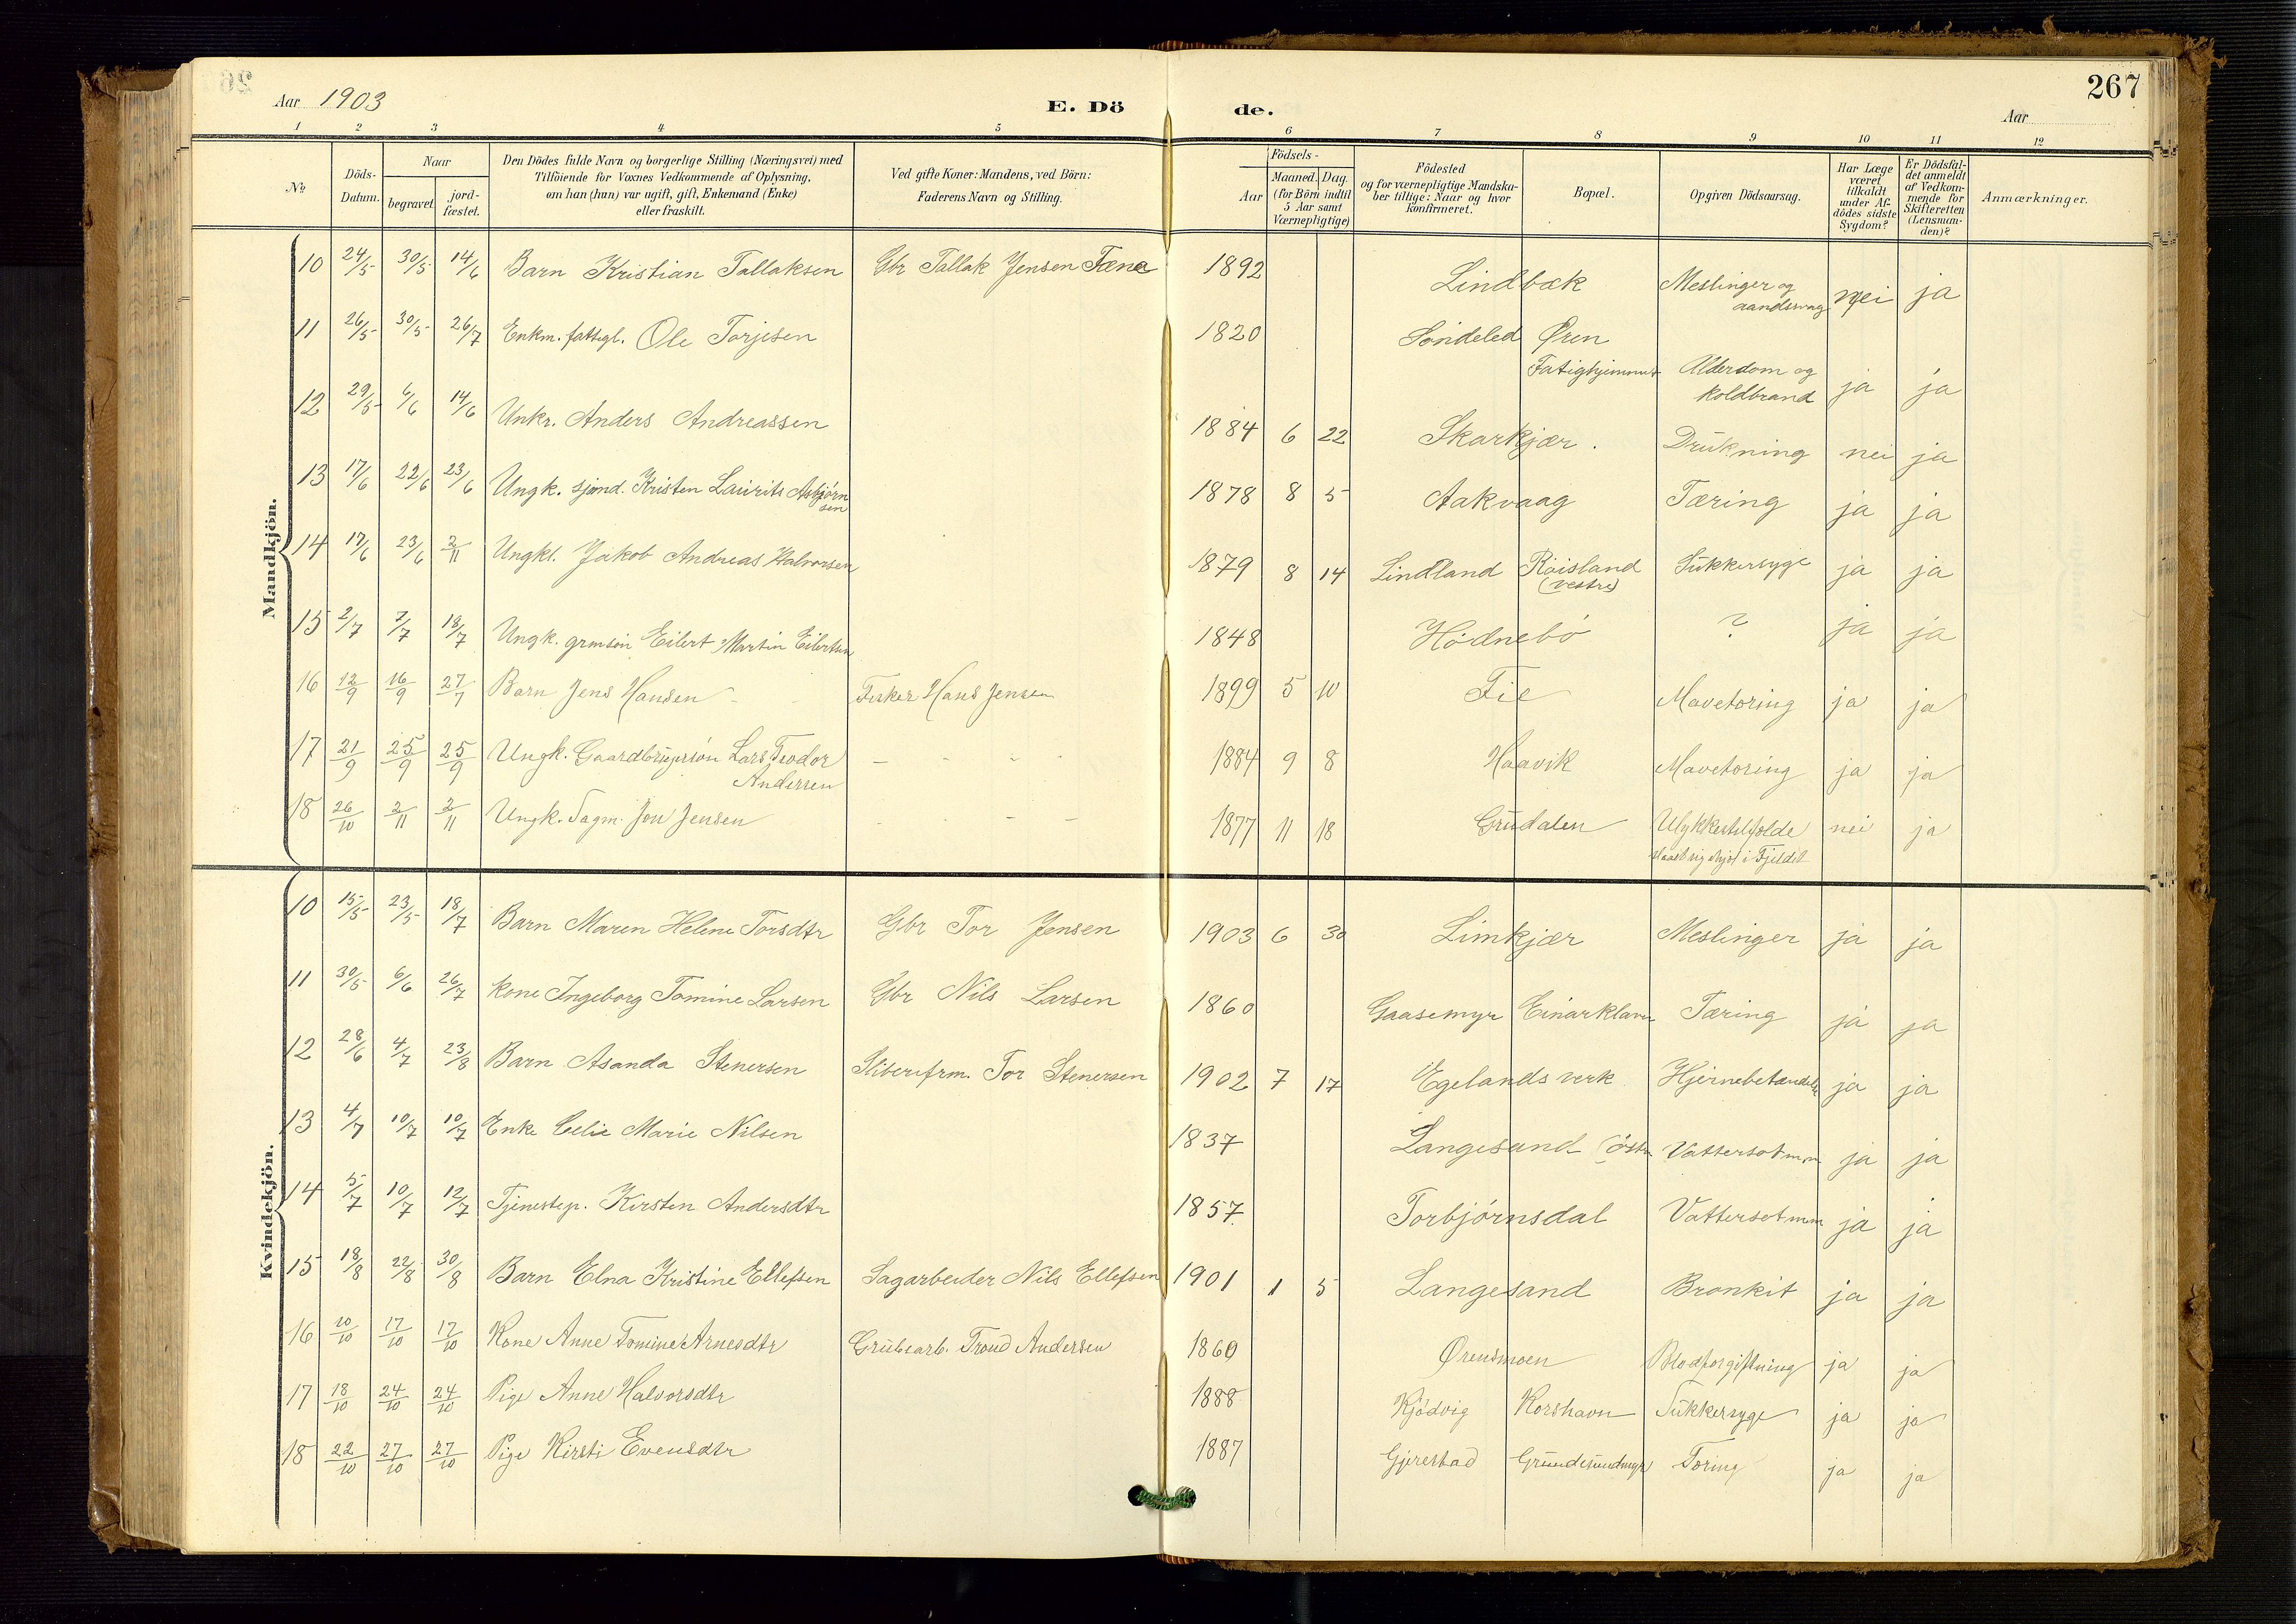 Aar 1903
E. Dö
de.
Aar
267
1 2 3 4 5 6 7 8 9 10 11 12
№
Döds-Datum.
Naar
begravet.
jord-fæstet.
Den Dödes fulde Navn og borgerlige Stilling (Næringsvei) med
Tilföiende for Voxnes Vedkommende af Oplysning,
om han (hun) var ugift, gift, Enkemand (Enke)
eller fraskilt.
Ved gifte Koner: Mandens, ved Börn:
Faderens Navn og Stilling.
Födsels-
Aar
Maaned. Dag.
(for Börn indtil
5 Aar samt
Værnepligtige)
Födested
og for værnepligtige Mandska-
ber tillige: Naar og hvor
konfirmeret.
Bopæl.
Opgiven Dödsaarsag.
Har Læge
været
tilkaldt
under Af-
dödes sidste
Sygdom?
Er Dödsfal-
det anmeldt
af Vedkom-
mende for
Skifteretten
(Lensman-
den)?
Anmærkninger.
Mandkjön.
10 24/5 30/5 14/6 Barn Kristian Tallaksen Gbr Tallak Jensen 1892 Lindbæk Meslinger og nei ja
11 26/5 30/5 26/7 Enkm. fattigl. Ole Torjesen 1820 Söndeled Øren
Fatighjemmet Alderdom og
koldbrand ja ja
12 29/5 6/6 14/6 Unkr. Anders Andreassen 1884 6 22 Skarkjær. Drukning nei ja
13 17/6 22/6 23/6 Ungk. sjömd. Kristen Laurits Asbjörn
sen 1878 8 5 Aakvaag Tæring ja ja
14 17/6 23/6 2/11 Ungkl. Jakob Andreas Halvorsen 1879 8 14 Lindland Röisland
(vestre) Sukkersyge ja ja
15 2/7 7/7 18/7 Ungk. grmsön Eilert Martin Eilertsen 1848 Hödnebö ? ja ja
16 12/9 16/9 27/7 Barn Jens Hansen Fisker Hans Jensen 1899 5 10 Fie Mavetæring ja ja
17 21/9 25/9 25/9 Ungk. Gaardbrugersön Lars Teodor
Andersen - - - - 1884 9 8 Haavik Mavetæring ja ja
18 26/10 2/11 2/11 Ungk. Dagm. Jon Jensen - - - 1877 11 18 Grudalen Ulykkestilfælde nei ja
i Fjeldet
Kvindekjön.
10 15/5 23/5 18/7 Barn Maren Helene Torsdtr Gbr Tor Jensen 1903 6 30 Limkjær Meslinger ja ja
11 30/5 6/6 26/7 kone Ingeborg Tomine Larsen Gbr Nils Larsen 1860 Gaasemyr Tæring ja ja
12 28/6 4/7 23/8 Barn Asanda Stenersen Sliberifrm. Tor Stenersen 1902 7 17 Egelands verk Hjernebetændelse ja ja
13 4/7 10/7 10/7 Enke Celie Marie Nilsen 1837 Langesand (östre Vattersot m.m ja ja
14 5/7 10/7 12/7 Tjenestep. Kirsten Andersdtr 1857 Torbjörnsdal Vattersot m.m ja ja
15 18/8 22/8 30/8 Barn Elna Kristine Ellefsen Sagarbeider Nils Ellefsen 1901 1 5 Langesand Bronkit ja ja
16 10/10 17/10 17/10 Kone Anne Tomine Arnesdtr Grubearb. Trond Andersen 1860 Örensmoen Blodforgiftning ja ja
17 18/10 24/10 24/10 Pige Anne Halvorsdtr 1888 Kjödvig Korshavn Sukkersyge ja ja
18 22/10 27/10 27/10 Pige Kirsti Evensdtr 1887 Gjerestad Grundesundmyr Tæring ja ja